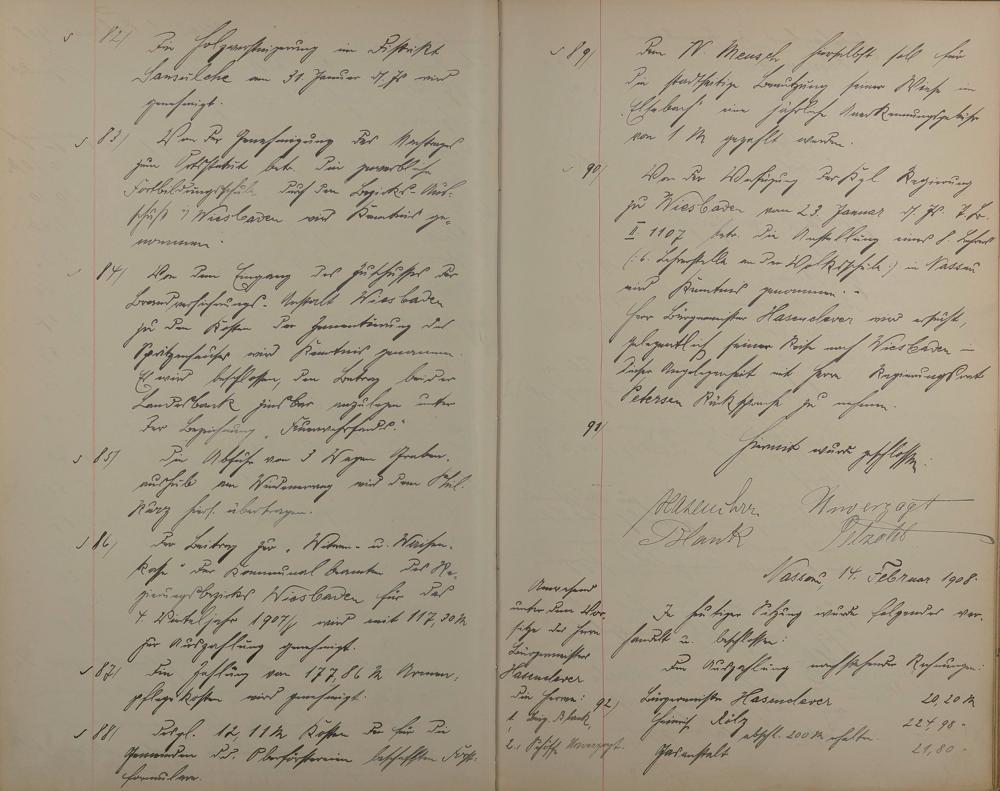 82/ Die Holzversteigerung im Distrikt
am 31. Januar d. Js. wird
genehmigt.
83/ Von der Genehmigung des Nachtrages
zum Ortsstatut betr. die gewerbliche
Fortbildungsschule durch den Bezirks-Aus-
schuß i/ Wiesbaden wird Kenntnis ge-
nommen.
84/ Von dem Eingang des Zuschusses der
Brandversicherungs-Anstalt Wiesbaden
zu den Kosten der Zementierung des
Spritzenhauses wird Kenntnis genommen.
Es wird beschlossen, den Betrag bei der
Landesbank zinsbar anzulegen unter
der Bezeichnung „Feuerwehrfonds“.
85/ Die Abfuhr von 3 Wagen Graben-
aushub am wird dem Phil.
Kurz hier. übertragen.
86/ Der Beitrag zur „Witwen- u. Waisen-
kasse“ der Kommunalbeamten des Re-
gierungsbezirks Wiesbaden für das
4 Vierteljahr 1907/ wird mit 117,30 M
zur Auszahlung genehmigt.
87/ Die Zahlung von 177,86 M Armen-
pflegekosten wird genehmigt.
88/ Desgl. 12,11 M Kosten der für die
Gemeinden d. d. Oberförsterei beschafften Forst-
formulare.
89/ Dem W Mensch hierselbst soll für
die stadtseitige Benutzung seiner Wiese in
„ “ eine jährliche Anerkennungsgebühr
von 1 M gezahlt werden.
90/ Von der Verfügung der Kgl. Regierung
zu Wiesbaden vom 23. Januar d. Js.
II 1107 betr. die Anstellung eines 6. Lehrers
(: 6. Lehrerstelle an der Volksschule :) in Nassau
wird Kenntnis genommen. -
Herr Bürgermeister Hasenclever wird ersucht,
gelegentlich seiner Reise nach Wiesbaden in
dieser Angelegenheit mit Herrn Regierungsrat
Petersen Rücksprache zu nehmen.
91/ Hiermit wurde geschlossen:
Hasenclever Unverzagt
Blank
Nassau, 14. Februar 1908.
Anwesend
unter dem Vor-
sitze des Herrn
Bürgermeisters
Hasenclever
die Herren:
1. Beig. Blank
2. Schöffe Unverzagt.
In heutiger Sitzung wurde folgendes ver-
handelt u. beschlossen:
Die Auszahlung nachstehender Rechnungen:
92) Bürgermeister Hasenclever 20,20 M
Heinrich 224,98 "
abschl. 200 M erhalten
Gasanstalt 21,80 "